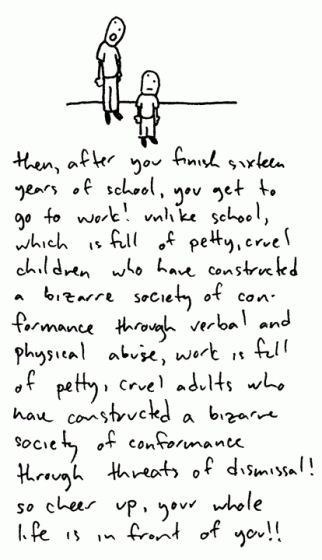 then, after you finish sixteen
years of school, you get to
go to work! unlike school,
which is full of petty, cruel
children who have constructed
a bizarre society of con-
formance through verbal and
physical abuse, work is full
of petty, cruel adults who
have constructed a bizarre
society of conformance
through threats of dismissal!
so cheer up, your whole
life is in front of you!!